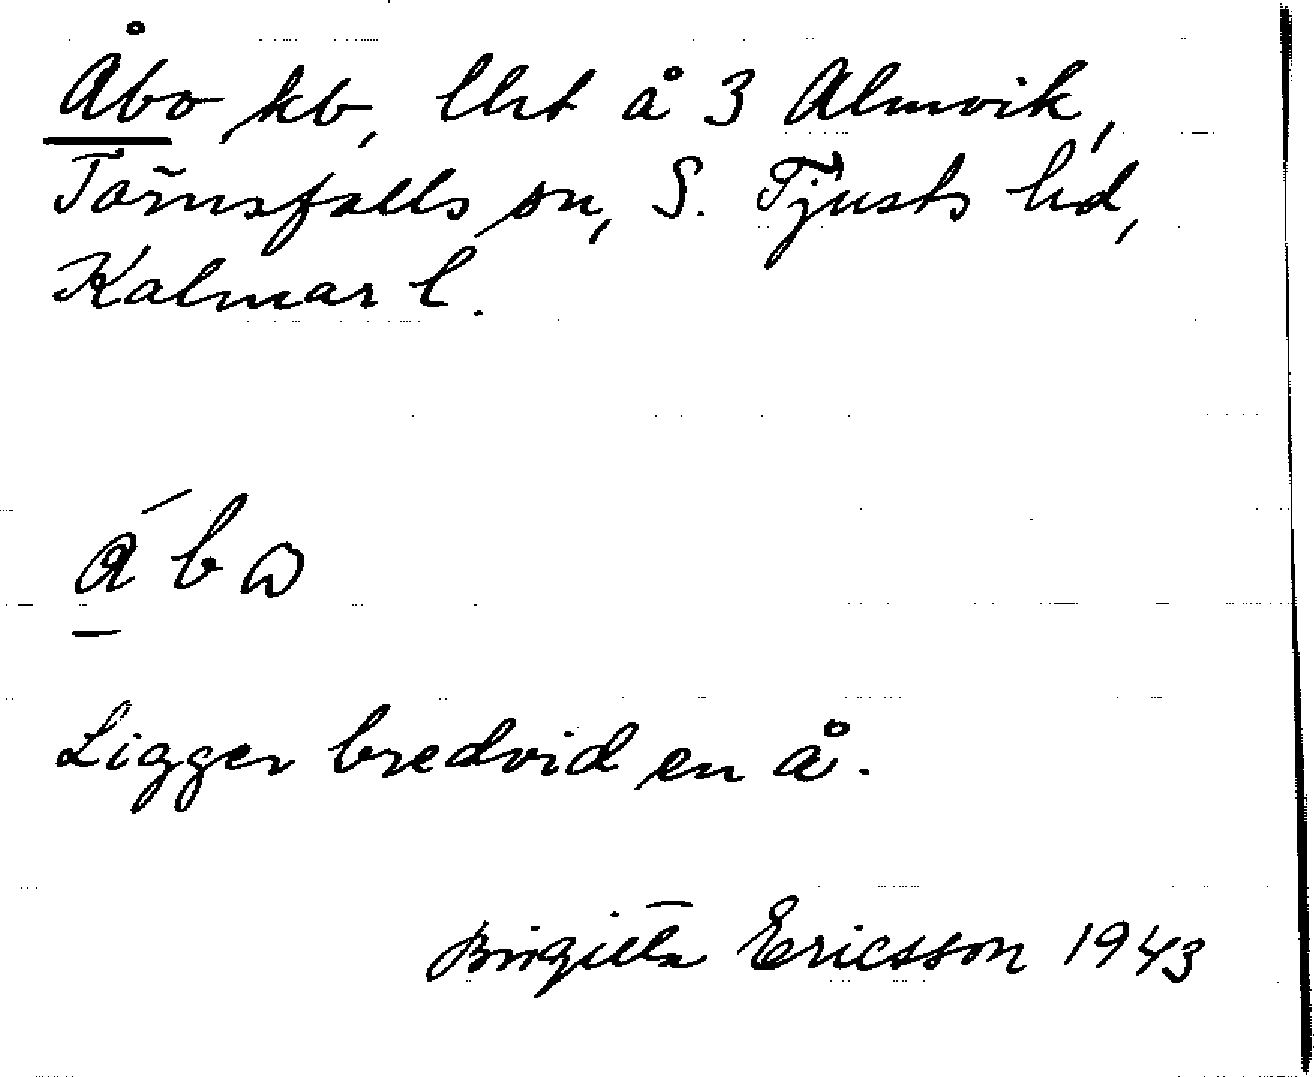 Åbo kb, lht å 3 Almvik,
Törnsfalls sn, S. Tjusts hd,
Kalmar l.
Ligger bredvid en å.
Birgitta Ericsson 1943